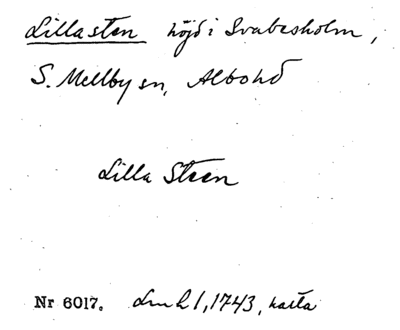 Lillasten höjd i Svabesholm,
S. Mellby sn, Albo hd
Lilla Steen
Nr 6017. Lm h 1, 1743, karta